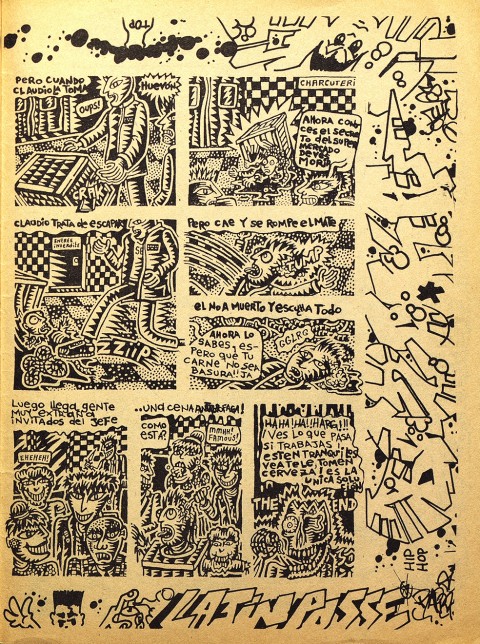 TOP
PERO CUANDO
CLAUDIO LA TOMA
OUPS!
HUEVON
CRAK
CHARCUTERI
AHORA CONO-
CES EL SECRE-
TO DEL SUPER
MERCADO
DEVES
MORIR
CLAUDIO TRATA de ESCAPAR
ENTREE
INVERSEE
ZZIIP
PERO CAE Y SE ROMPE el MATE
el NO A MUERTO Y ESCUCHA TODO
AHORA LO
SABES, ES-
PERO QUE TU
CARNE NO SEA
BASURA!! JA
GGLRG
LUEGO llega gente
MUY EXTRAÑA
INVITADOS del JEFE
EHEHEH!
..UNA CENA ANTROFAGA!
COMO
ESTA?
MMHH!
FAMOUS!
HA!HA!!HA!!HARGH!!!
¡VES LO QUE PASA
SI TRABAJAS!
ESTEN TRANQUILES
VEA TELE, TOMEN
CERVEZA! ES LA
UNICA SOLU
THE END
HIP
HOP
LATIN POSSE